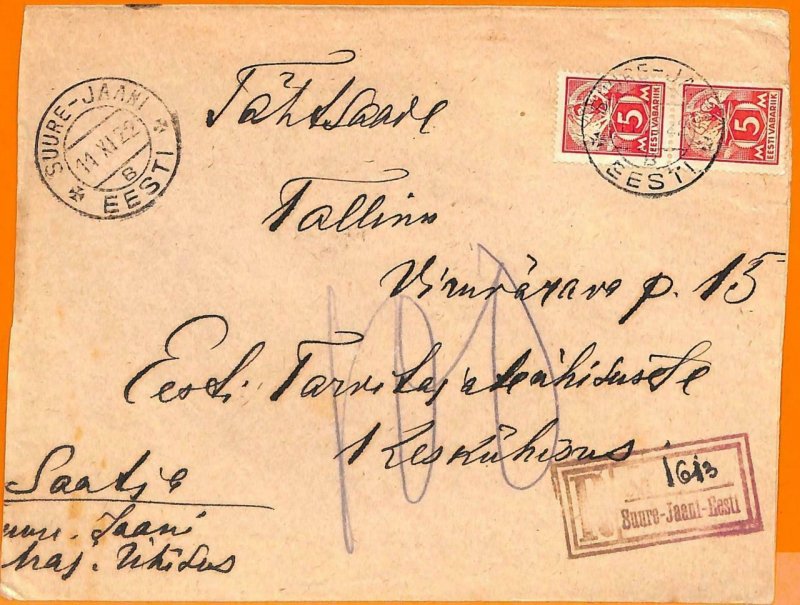 SUURE-JAANI
11 XI 22
B
EESTI
SUURE-JAANI
B
EESTI
5 M
EESTI VABARIIK
5 M
EESTI VABARIIK
Tähtsaade
Tallinn
Viruvärava p. 15
Eesti Tarvitajateühisuste
Keskühisus
Saatja
Suure-Jaani-Eesti
Jaani
Maj. Ühisus